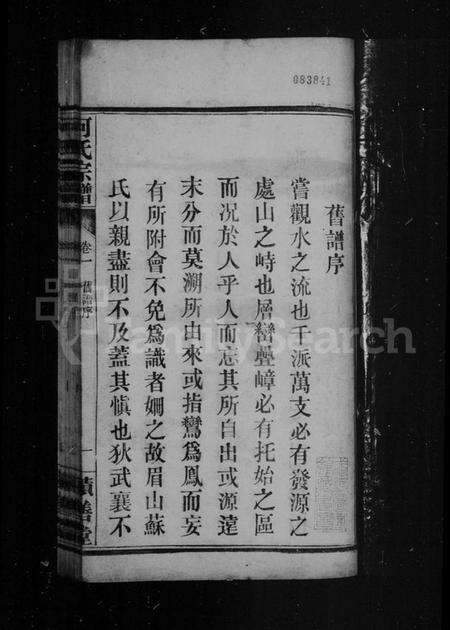 083841
舊譜序
嘗觀水之流也千派萬支必有發源之
處山之峙也層巒疊嶂必有托始之區
而況於人乎人而忘其所自出或源遠
末分而莫溯所由來或指鸞為鳳而妄
有所附會不免為識者嗤之故眉山蘇
氏以親盡則不及蓋其慎也狄武襄不
何氏宗譜
卷一
舊譜序
一
FamilySearch